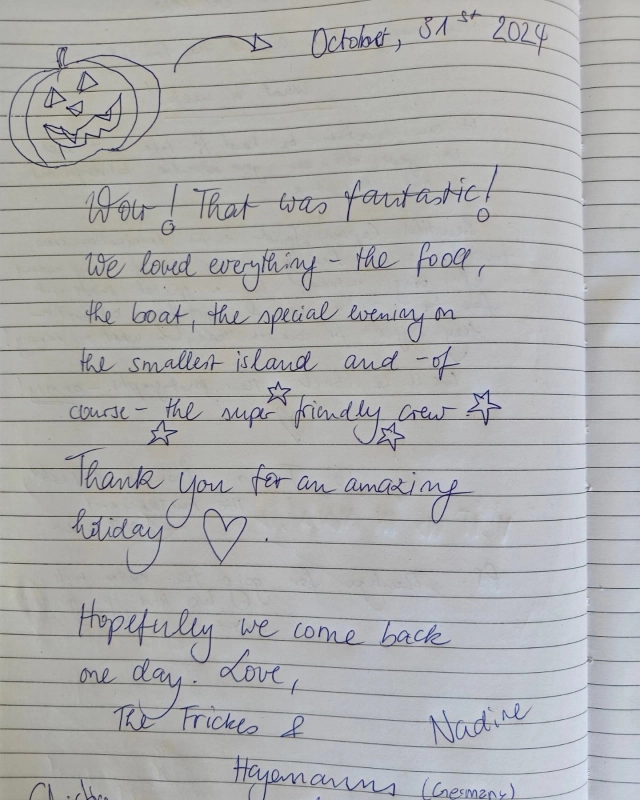 October, 31st 2024
Wow! That was fantastic!
We loved everything - the food,
the boat, the special evening on
the smallest island and -of
course- the super friendly crew
Thank you for an amazing
holiday
Hopefully we come back
one day. Love,
The Frickes & Nadine
(Germany)